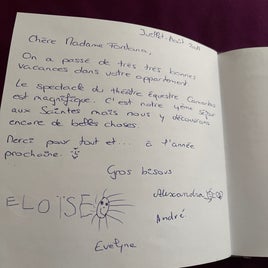 Juillet-Août 2011
Chère Madame Fontana,
On a passé de très très bonnes
vacances dans votre appartement
Le spectacle du théâtre équestre Camarkas
est magnifique. C'est notre 4ème séjour
aux Saintes mais nous y découvrons
encore de belles choses.
Merci pour tout et... à l'année
prochaine.
Gros bisous
ELOÏSE
Alexandra
André
Evelyne